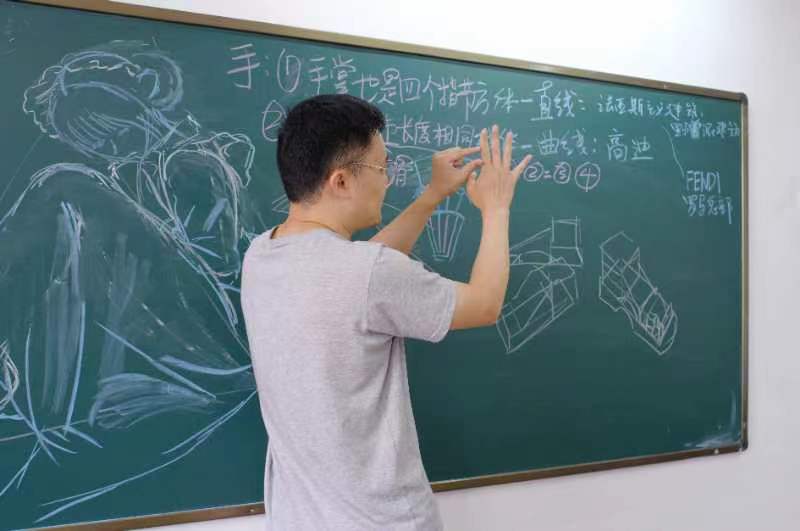 手：① 手掌也是四个指节方体一直线：法西斯主义建筑，
② 长度相同 一曲线：高迪
滑 ②=③ ④
FENDI
罗马总部